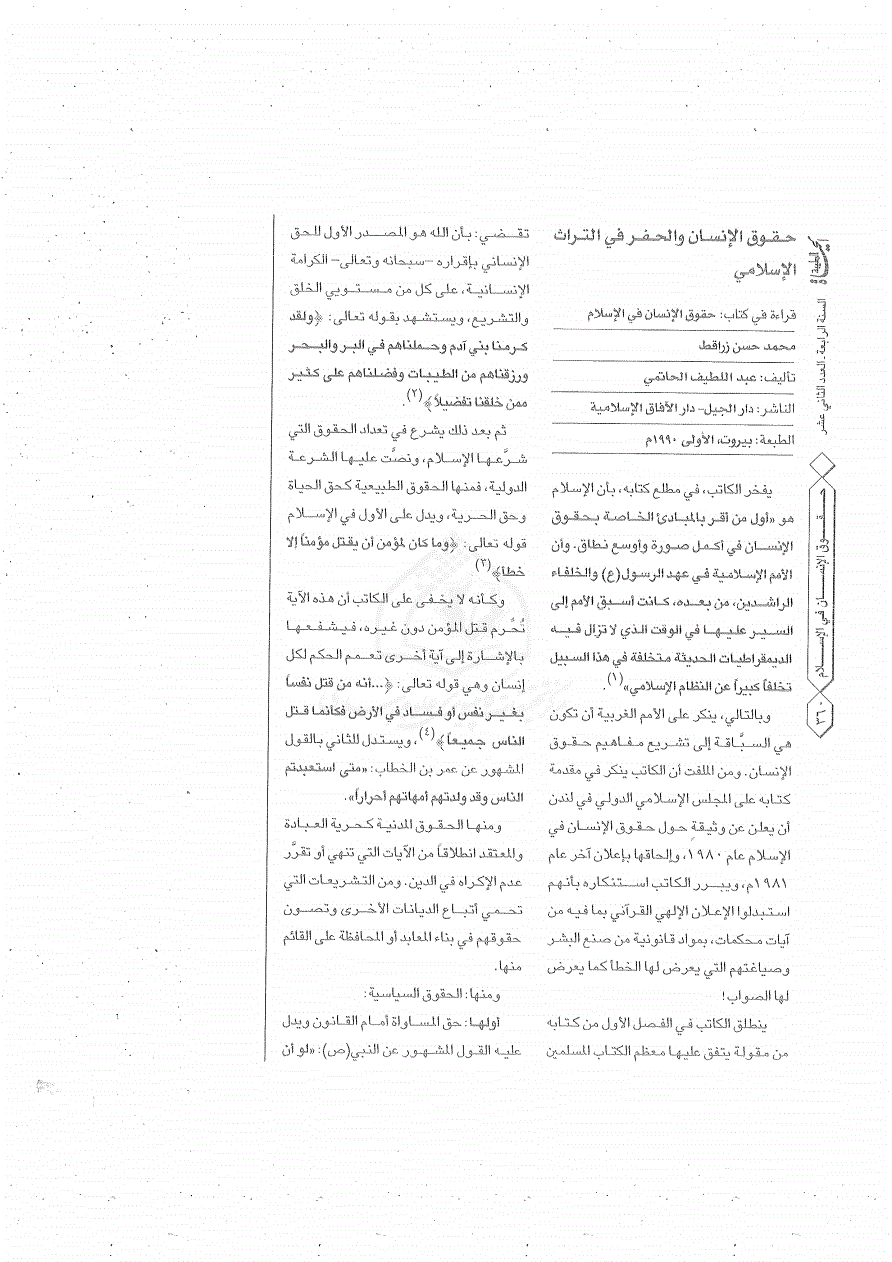 حقوق الإنسان والحفر في التراث
الإسلامي
قراءة في كتاب: حقوق الإنسان في الإسلام
محمد حسن زراقط
تأليف: عبد اللطيف الحاتمي
الناشر: دار الجيل- دار الآفاق الإسلامية
الطبعة: بيروت، الأولى ١٩٩٠م
يفخر الكاتب، في مطلع كتابه، بأن الإسلام
هو «أول من أقر بالمبادئ الخاصة بحقوق
الإنسان في أكمل صورة وأوسع نطاق. وأن
الأمم الإسلامية في عهد الرسول(ع) والخلفاء
الراشدين، من بعده، كانت أسبق الأمم إلى
السير عليها في الوقت الذي لا تزال فيه
الديمقراطيات الحديثة متخلفة في هذا السبيل
تخلفاً كبيراً عن النظام الإسلامي»(١).
وبالتالي، ينكر على الأمم الغربية أن تكون
هي السبَّاقة إلى تشريع مفاهيم حقوق
الإنسان. ومن الملفت أن الكاتب ينكر في مقدمة
كتابه على المجلس الإسلامي الدولي في لندن
أن يعلن عن وثيقة حول حقوق الإنسان في
الإسلام عام ١٩٨٠، وإلحاقها بإعلان آخر عام
١٩٨١م، ويبرر الكاتب استنكاره بأنهم
استبدلوا الإعلان الإلهي القرآني بما فيه من
آيات محكمات، بمواد قانونية من صنع البشر
وصياغتهم التي يعرض لها الخطأ كما يعرض
لها الصواب!
ينطلق الكاتب في الفصل الأول من كتابه
من مقولة يتفق عليها معظم الكتاب المسلمين
تقضي: بأن الله هو المصدر الأول للحق
الإنساني بإقراره –سبحانه وتعالى– الكرامة
الإنسانية، على كل من مستويي الخلق
والتشريع، ويستشهد بقوله تعالى: ﴿ولقد
كرمنا بني آدم وحملناهم في البر والبحر
ورزقناهم من الطيبات وفضلناهم على كثير
ممن خلقنا تفضيلاً﴾(٢).
ثم بعد ذلك يشرع في تعداد الحقوق التي
شرَّعها الإسلام، ونصَّت عليها الشرعة
الدولية، فمنها الحقوق الطبيعية كحق الحياة
وحق الحرية، ويدل على الأول في الإسلام
قوله تعالى: ﴿وما كان لمؤمن أن يقتل مؤمناً إلا
خطأ﴾(٣)
وكأنه لا يخفى على الكاتب أن هذه الآية
تُحَّرم قتل المؤمن دون غيره، فيشفعها
بالإشارة إلى آية أخرى تعمم الحكم لكل
إنسان وهي قوله تعالى: ﴿...أنه من قتل نفساً
بغير نفس أو فساد في الأرض فكأنما قتل
الناس جميعاً﴾(٤)، ويستدل للثاني بالقول
المشهور عن عمر بن الخطاب: «متى استعبدتم
الناس وقد ولدتهم أمهاتهم أحراراً».
ومنها الحقوق المدنية كحرية العبادة
والمعتقد انطلاقاً من الآيات التي تنهي أو تقرَّر
عدم الإكراه في الدين. ومن التشريعات التي
تحمي أتباع الديانات الأخرى وتصون
حقوقهم في بناء المعابد أو المحافظة على القائم
منها.
ومنها: الحقوق السياسية:
أولها: حق المساواة أمام القانون ويدل
عليه القول المشهور عن النبي(ص): «لو أن
الطيبة
السنة الرابعة. العدد الثاني عشر
حقوق الإنسان في الإسلام
٣٦٠